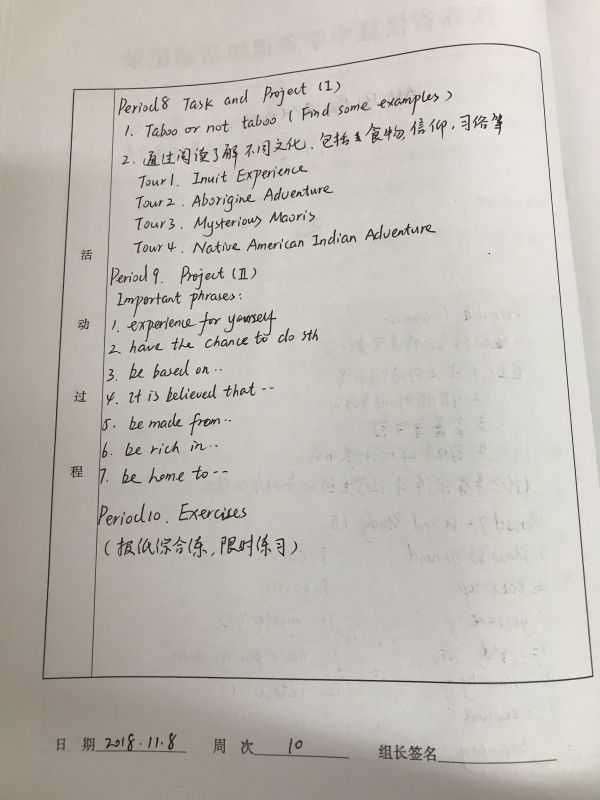 Period 8 Task and Project (I)
1. Taboo or not taboo (Find some examples)
2. 通过阅读了解不同文化, 包括食物, 信仰, 习俗等
Tour 1. Inuit Experience
Tour 2. Aborigine Adventure
Tour 3. Mysterious Maoris
Tour 4. Native American Indian Adventure
Period 9. Project (II)
Important phrases:
1. experience for yourself
2. have the chance to do sth
3. be based on..
4. It is believed that --
5. be made from..
6. be rich in..
7. be home to --
Period 10. Exercises
(报纸综合练, 限时练习)
活
动
过
程
日 期 2018.11.8 周 次 10 组长签名